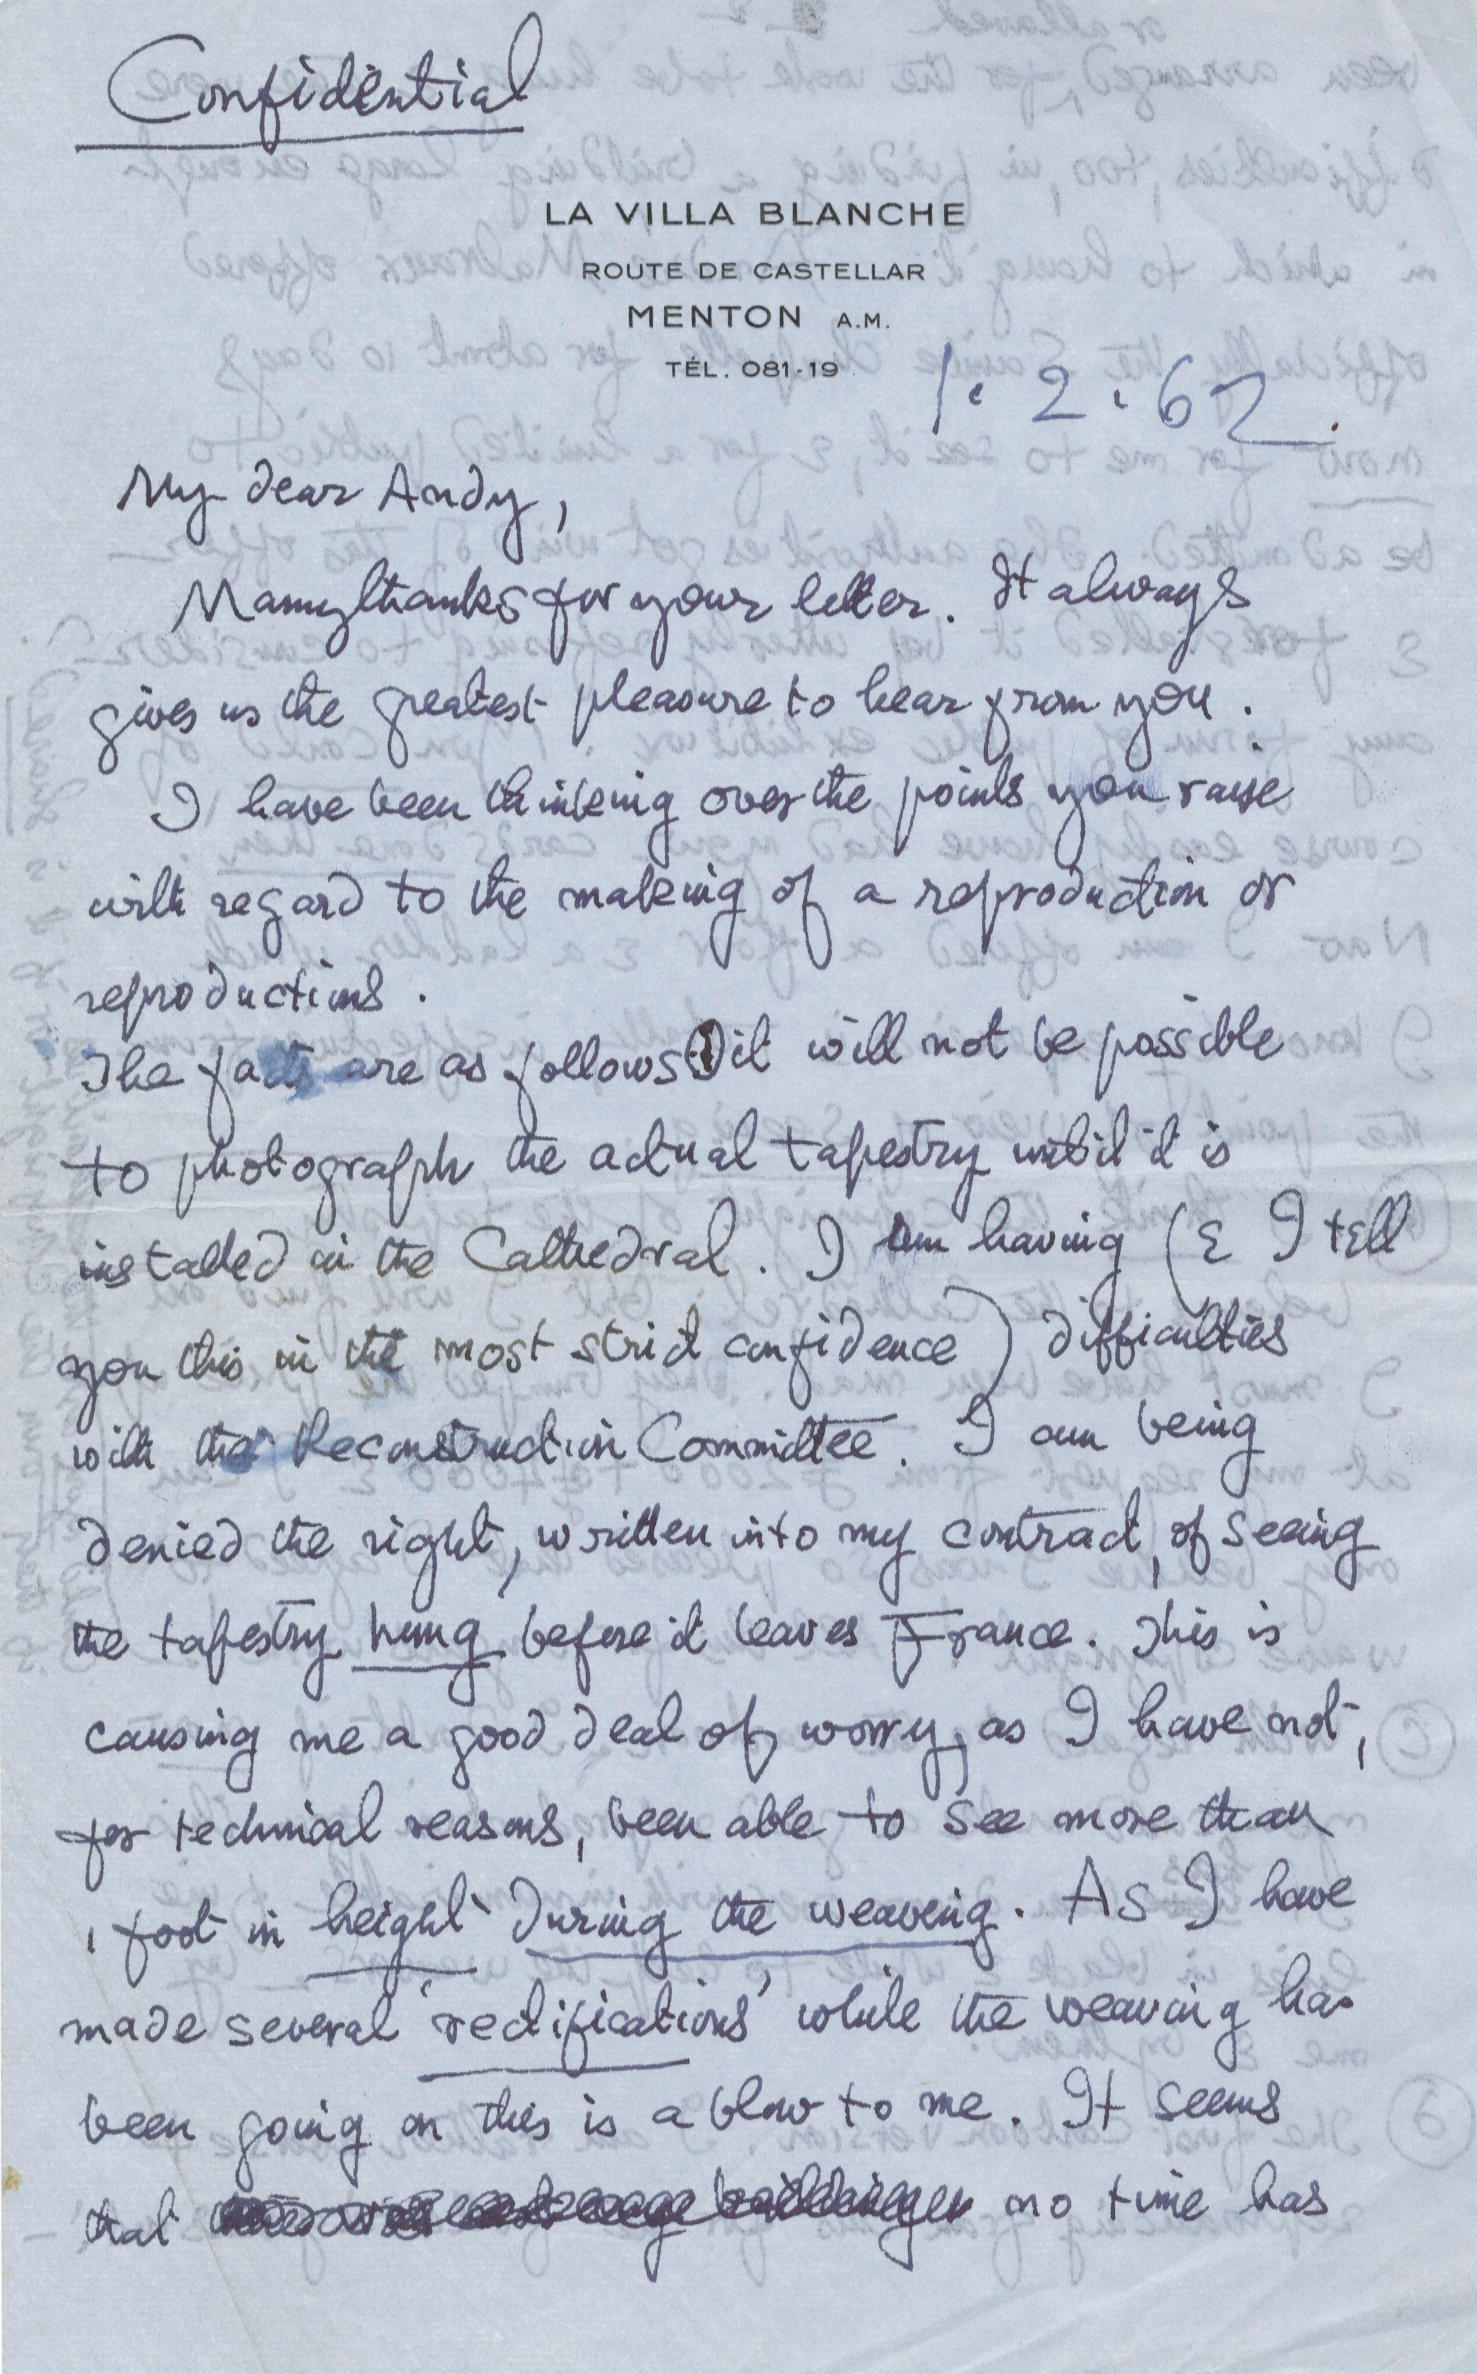 Confidential
LA VILLA BLANCHE
ROUTE DE CASTELLAR
MENTON A.M.
TÉL. 081-19
1.2.62.
My dear Andy,
Many thanks for your letter. It always
gives us the greatest pleasure to hear from you.
I have been thinking over the points you raise
with regard to the making of a reproduction or
reproductions.
The facts are as follows ① it will not be possible
to photograph the actual tapestry until it is
installed in the Cathedral. I am having (& I tell
you this in the most strict confidence) difficulties
with the Reconstruction Committee. I am being
denied the right, written into my contract, of seeing
the tapestry hung before it leaves France. This is
causing me a good deal of worry, as I have not,
for technical reasons, been able to see more than
1 foot in height during the weaving. As I have
made several 'rectifications' while the weaving has
been going on this is a blow to me. It seems
that no time has